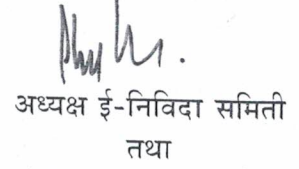 अध्यक्ष ई-निविदा समिती
तथा